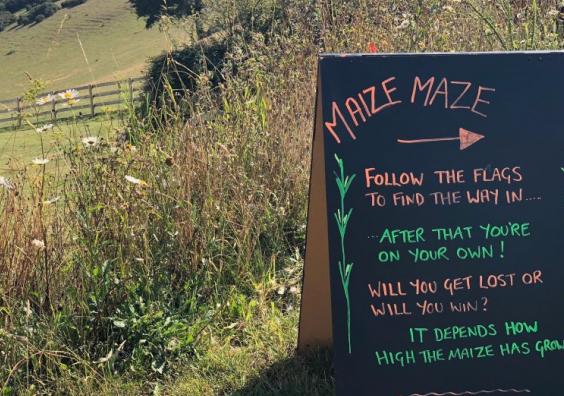 MAIZE MAZE
FOLLOW THE FLAGS
TO FIND THE WAY IN....
...AFTER THAT YOU'RE
ON YOUR OWN!
WILL YOU GET LOST OR
WILL YOU WIN?
IT DEPENDS HOW
HIGH THE MAIZE HAS GROW